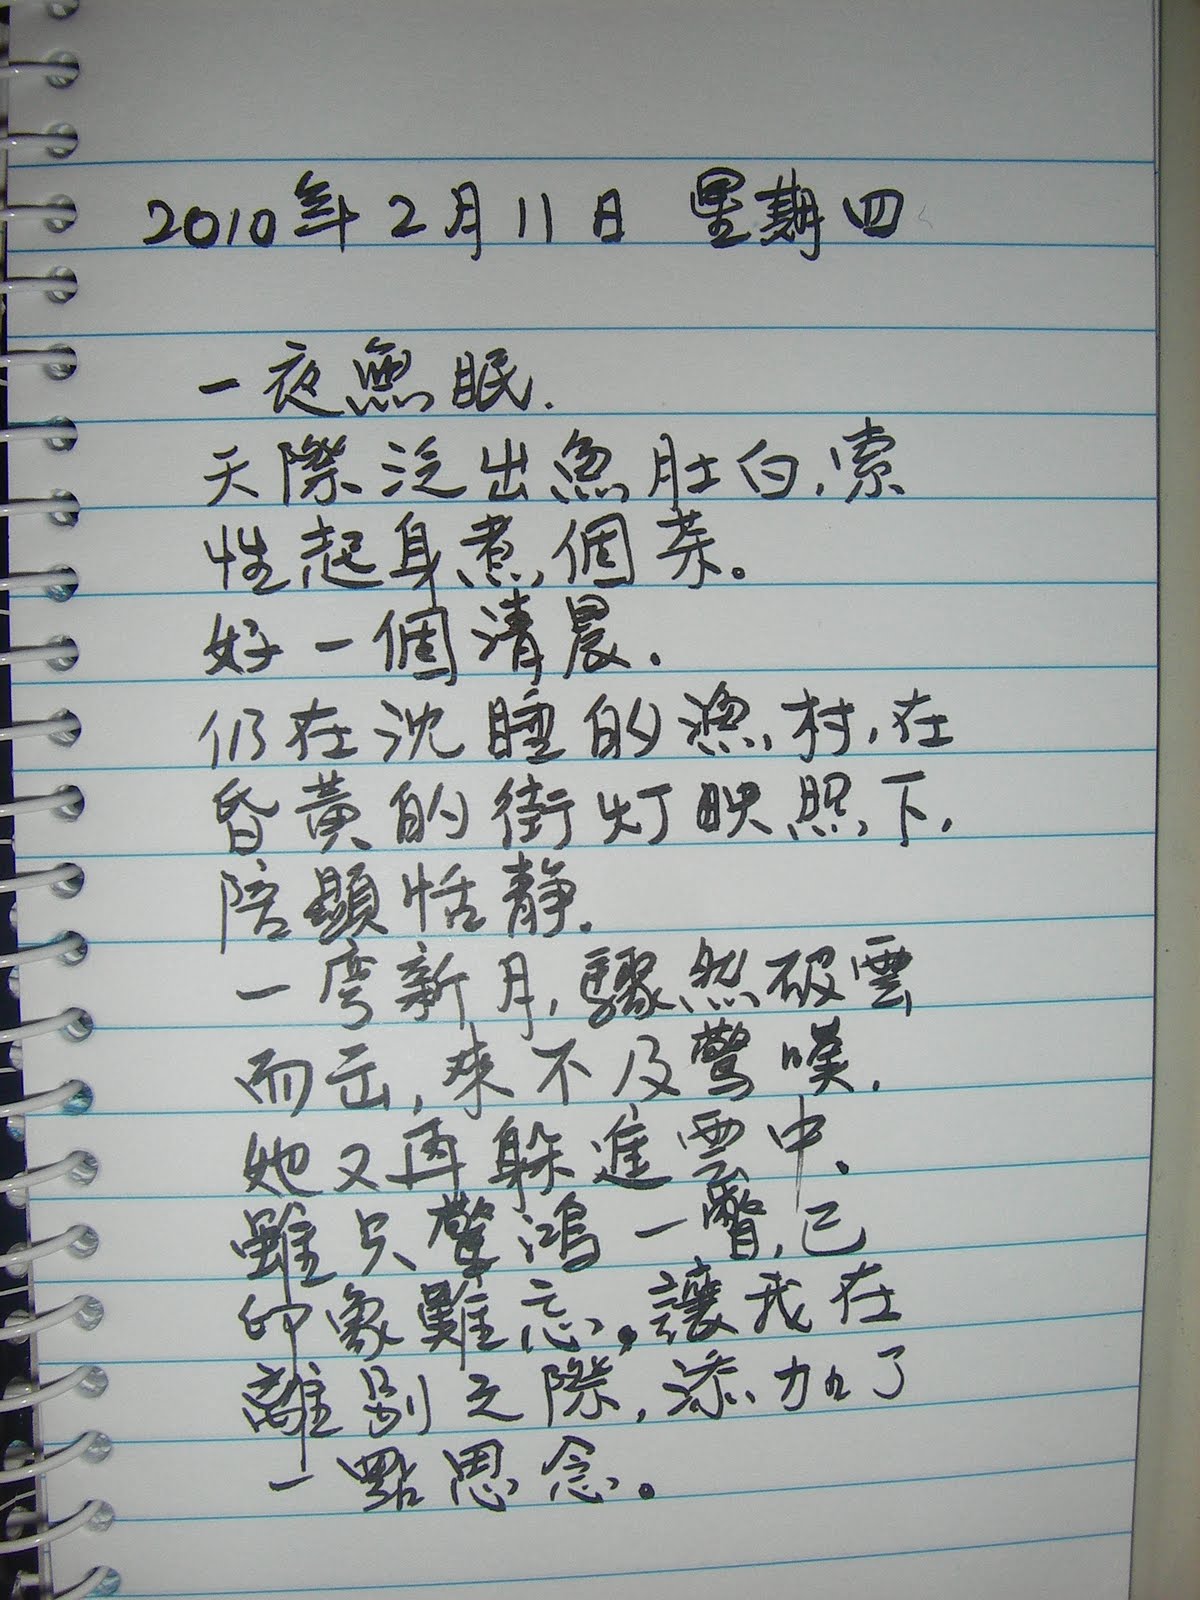 2010年2月11日 星期四
一夜無眠.
天際泛出魚肚白,索
性起身煮個茶。
好一個清晨.
仍在沈睡的漁村,在
昏黃的街灯映照下,
陪顯恬靜.
一彎新月,驟然破雲
而出,來不及驚嘆,
她又再躲進雲中.
雖只驚鴻一瞥,已
印象難忘,讓我在
離別之際,添加了
一點思念。